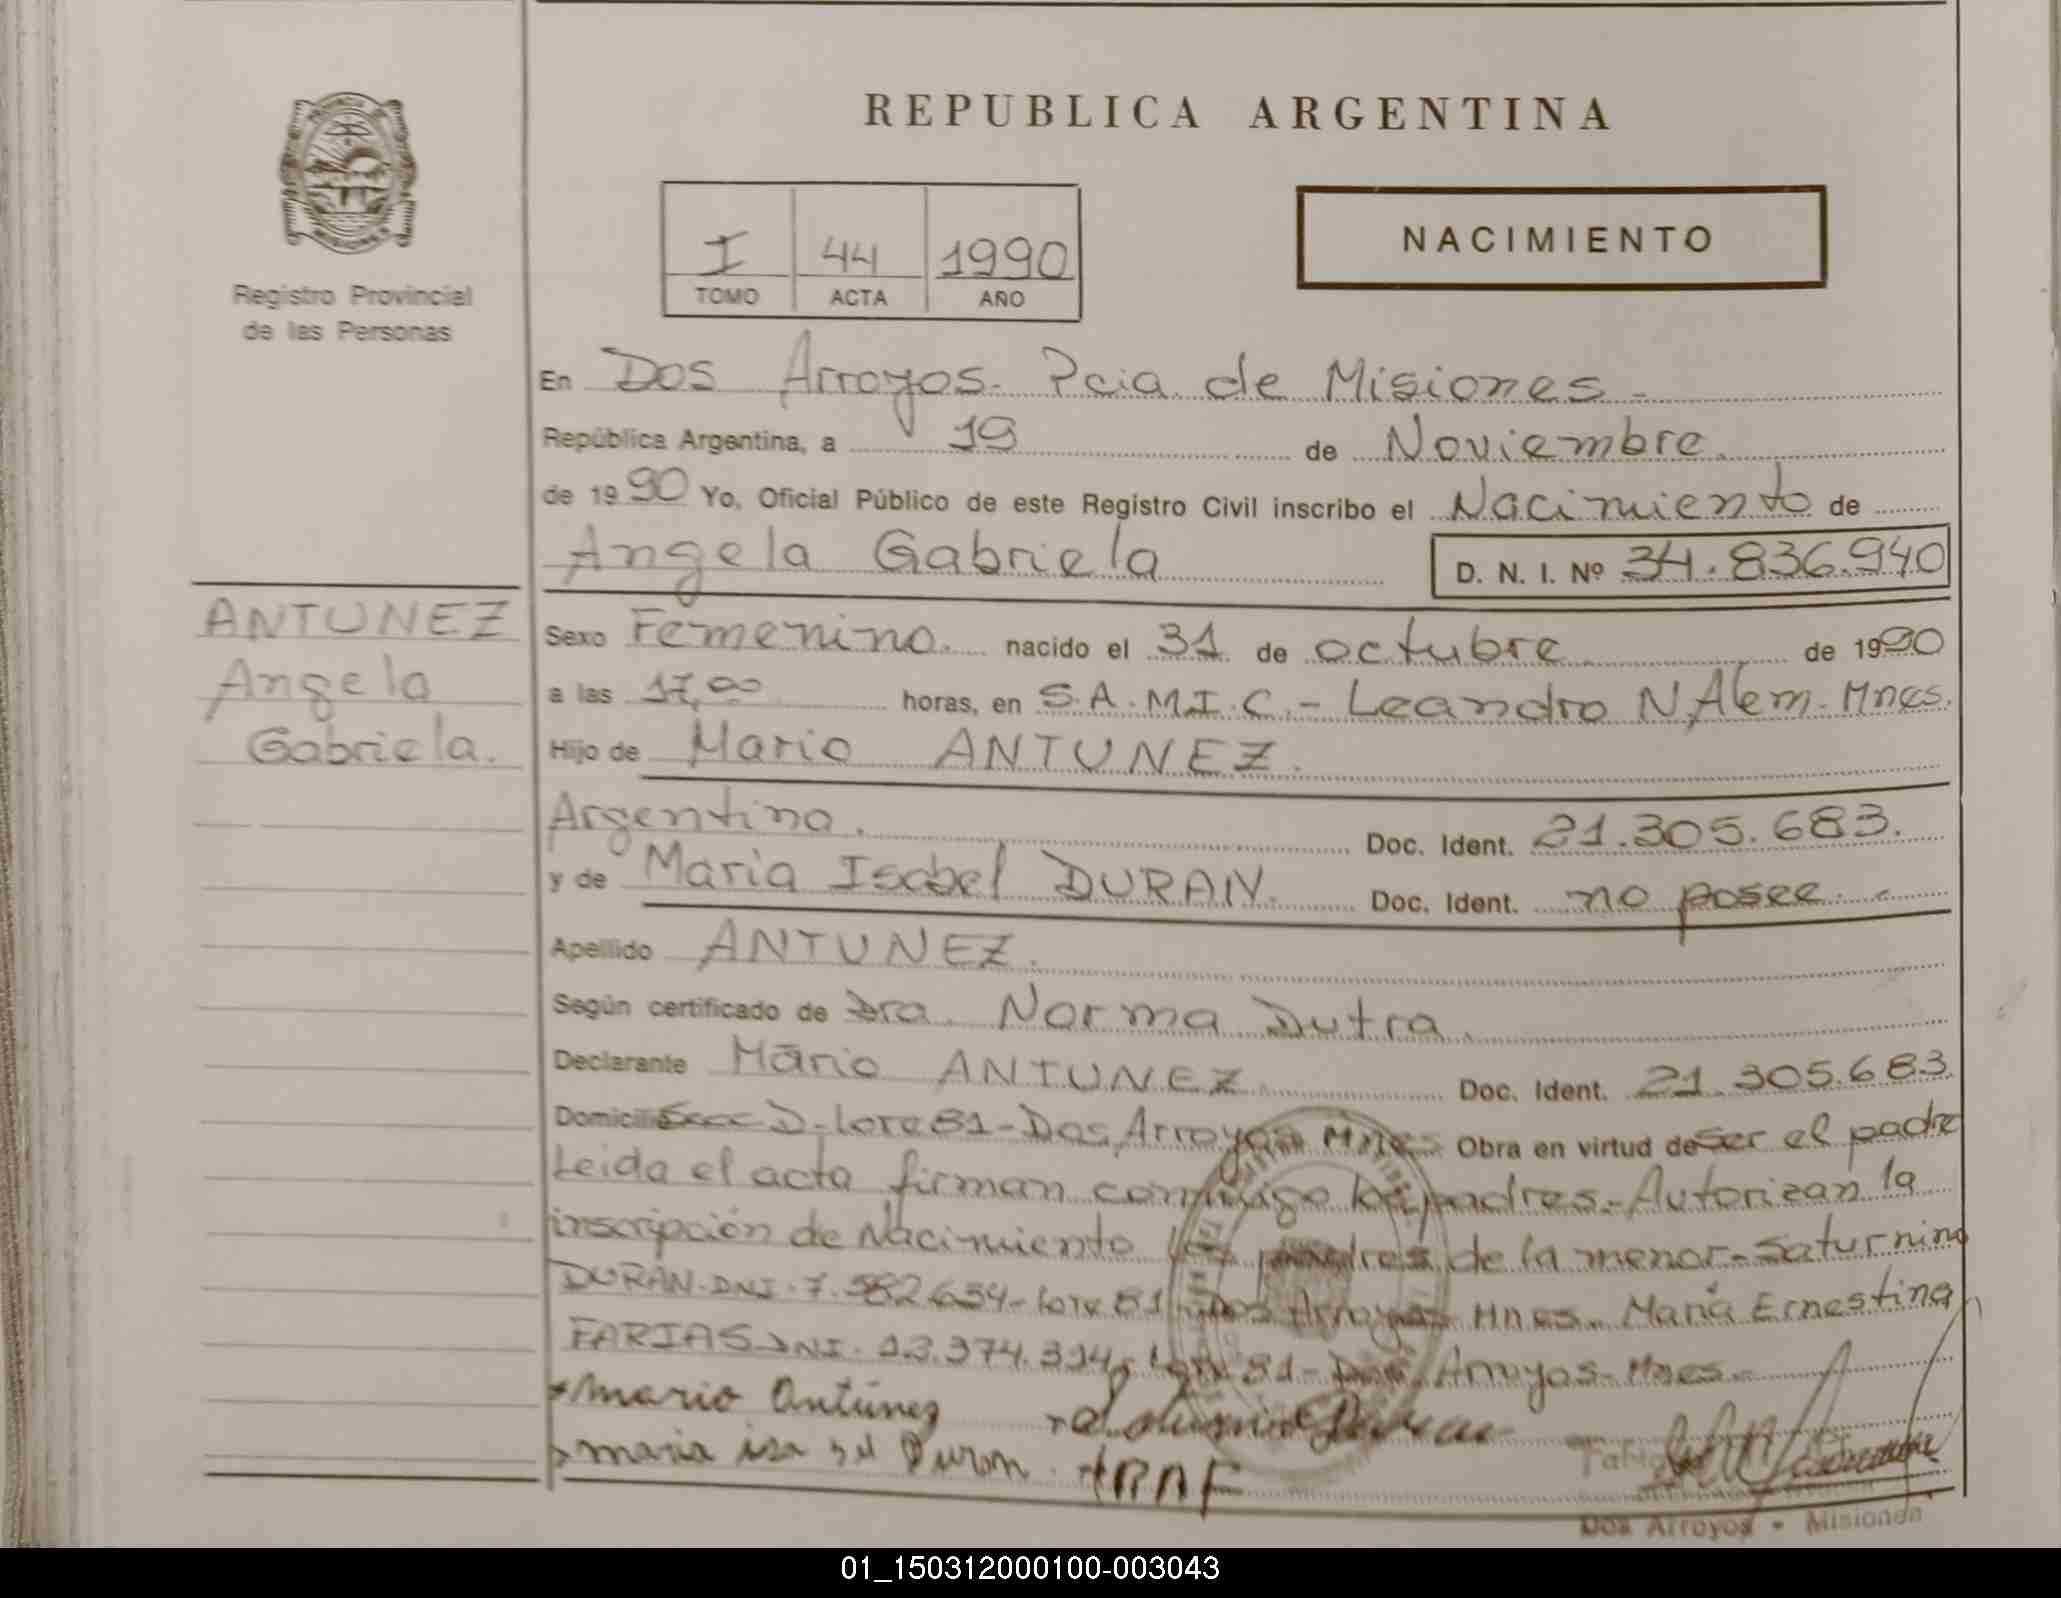 REPUBLICA ARGENTINA
PROVINCIA DE MISIONES
Registro Provincial
de las Personas
I 44 1990
TOMO ACTA AÑO
NACIMIENTO
En Dos Arroyos. Pcia. de Misiones.-
República Argentina, a 19 de Noviembre.
de 1990 Yo, Oficial Público de este Registro Civil inscribo el Nacimiento de
Angela Gabriela D. N. I. Nº 34.836.940
ANTUNEZ
Angela
Gabriela.
Sexo Femenino. nacido el 31 de octubre de 1990
a las 17,00 horas, en S.A.M.I.C.- Leandro N. Alem. Mnes.
Hijo de Mario ANTUNEZ.
Argentino. Doc. Ident. 21.305.683.
y de Maria Isabel DURAN. Doc. Ident. no posee.
Apellido ANTUNEZ.
Según certificado de Dra. Norma Dutra.
Declarante Mario ANTUNEZ Doc. Ident. 21.305.683
Domicilio Secc D- lote 81- Dos Arroyos Mnes Obra en virtud de ser el padre
Leida el acta firman conmigo los padres.- Autorizan la
inscripción de Nacimiento los padres de la menor- Saturnino
DURAN- DNI- 7.582.654- lote 81 Dos Arroyos Mnes.. Maria Ernestina
FARIAS DNI. 13.374.314- lote 81- Dos Arroyos- Mnes.-
mario Antúnez
maria isabel Duran
Dos Arroyos - Misiones
01_150312000100-003043